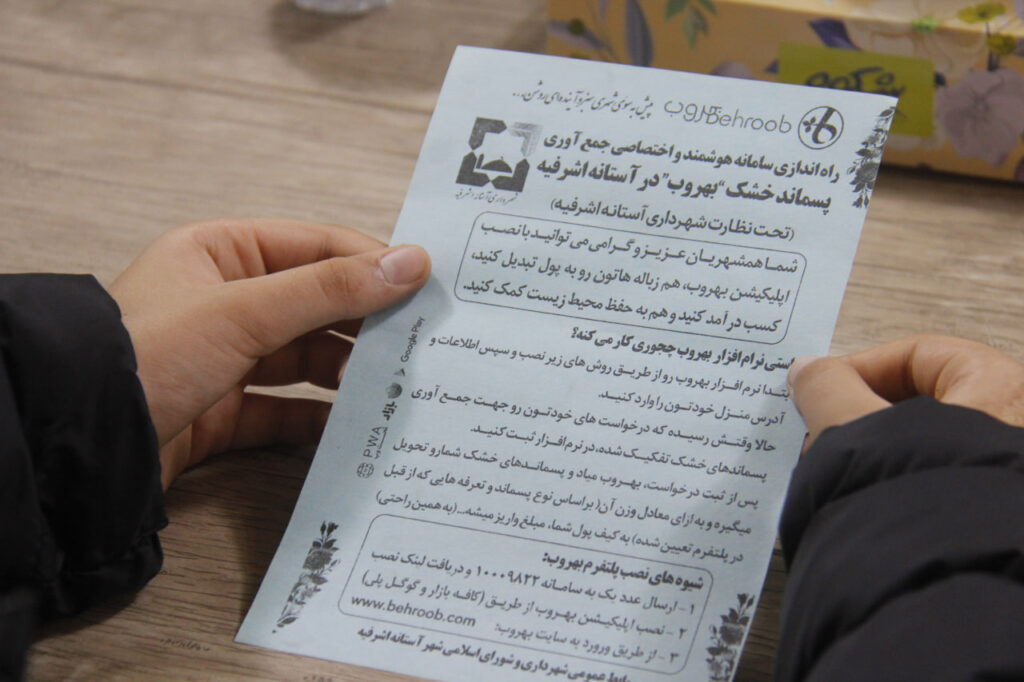 پیش به سوی شهری سبز و آینده‌ای روشن...
بهروب Behroob
راه اندازی سامانه هوشمند و اختصاصی جمع آوری
پسماند خشک "بهروب" در آستانه اشرفیه
شهرداری آستانه اشرفیه
(تحت نظارت شهرداری آستانه اشرفیه)
شما همشهریان عزیز و گرامی می توانید با نصب
اپلیکیشن بهروب، هم زباله هاتون رو به پول تبدیل کنید،
کسب درآمد کنید و هم به حفظ محیط زیست کمک کنید.
استی نرام افزار بهروب چجوری کار می کنه؟
بتدا نرم افزار بهروب رو از طریق روش های زیر نصب و سپس اطلاعات و
آدرس منزل خودتون را وارد کنید.
حالا وقتش رسیده که درخواست های خودتون رو جهت جمع آوری
پسماندهای خشک تفکیک شده، در نرم افزار ثبت کنید.
پس از ثبت درخواست، بهروب میاد و پسماندهای خشک شمارو تحویل
میگیره و به ازای معادل وزن آن( براساس نوع پسماند و تعرفه هایی که از قبل
در پلتفرم تعیین شده) به کیف پول شما، مبلغ واریز میشه...(به همین راحتی)
Google Play
بازار
PWA
شیوه های نصب پلتفرم بهروب:
۱ - ارسال عدد یک به سامانه ۱۰۰۰۹۸۲۲ و دریافت لینک نصب
۲ - نصب اپلیکیشن بهروب از طریق (کافه بازار و گوگل پلی)
۳ - از طریق ورورد به سایت بهروب: www.behroob.com
روابط عمومی شهرداری و شورای اسلامی شهر آستانه اشرفیه